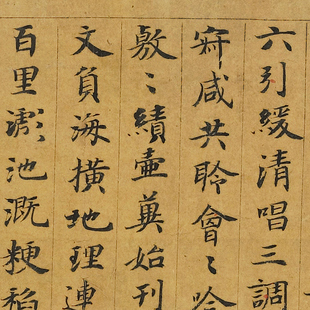 六引緩清唱三調
寂咸共聆會〻吟
敷〻績壺冀始刊
文負海橫地理連
百里滮池溉粳稻